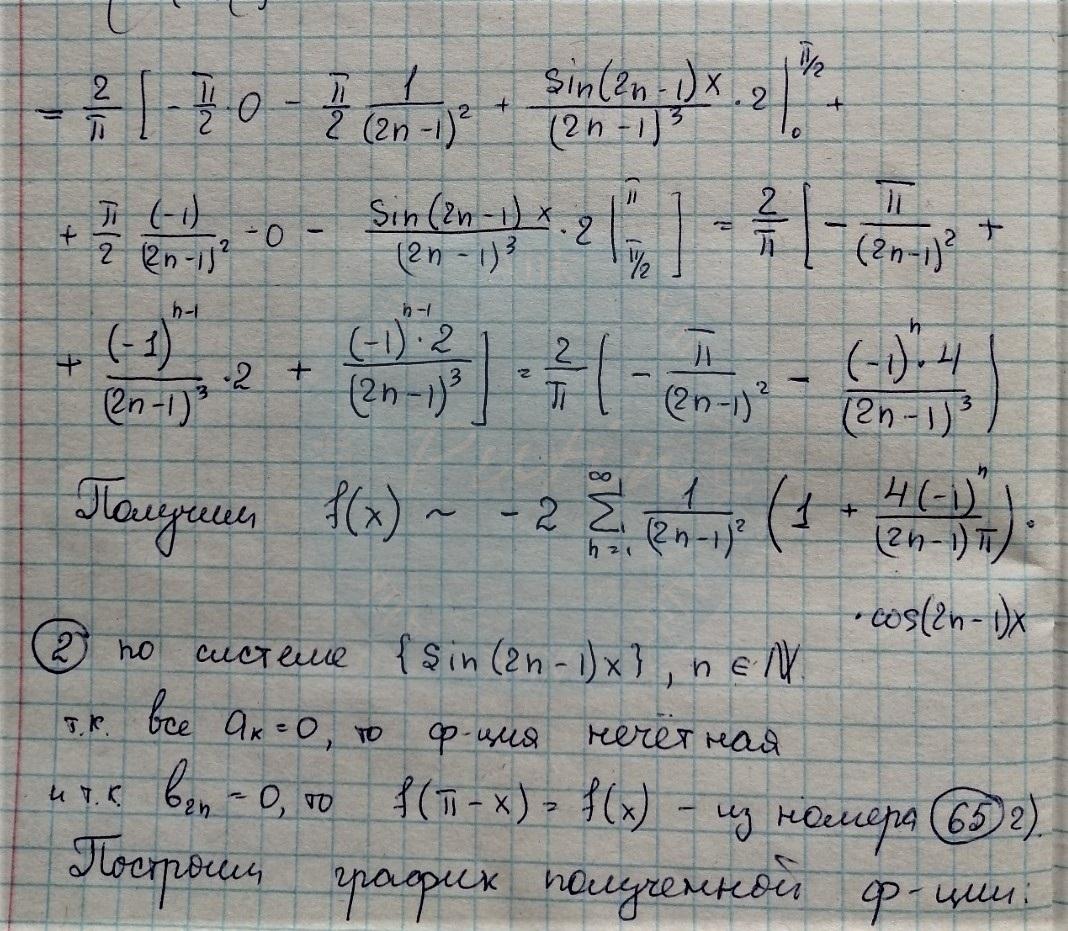 = 2/π [ - π/2 · 0 - π/2 1/(2n-1)² + sin(2n-1)x/(2n-1)³ · 2 |₀^π/2 +
+ π/2 (-1)/(2n-1)² - 0 - sin(2n-1)x/(2n-1)³ · 2 |_π/2^π ] = 2/π [ - π/(2n-1)² +
+ (-1)ⁿ⁻¹/(2n-1)³ · 2 + (-1)ⁿ⁻¹ · 2/(2n-1)³ ] = 2/π [ - π/(2n-1)² - (-1)ⁿ · 4/(2n-1)³ )
Получим f(x) ~ - 2 ∑_{n=1}^∞ 1/(2n-1)² (1 + 4(-1)ⁿ/(2n-1)π) ·
· cos(2n-1)x
② по системе {sin(2n-1)x}, n ∈ N.
т.к. все aₖ = 0, то ф-ция нечётная
и т.к. b₂ₙ = 0, то f(π-x) = f(x) - из номера 65 г).
Построим график полученной ф-ции: